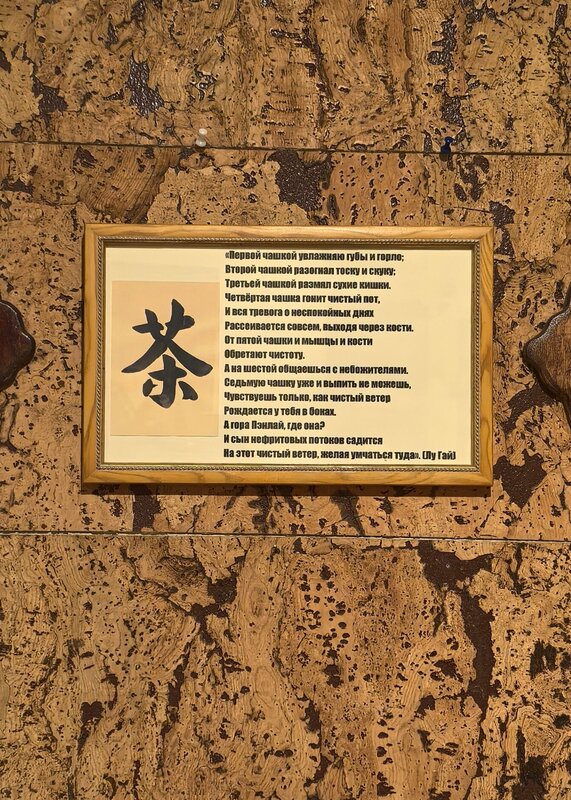 茶
«Первой чашкой увлажняю губы и горло;
Второй чашкой разогнал тоску и скуку;
Третьей чашкой размял сухие кишки.
Четвёртая чашка гонит чистый пот,
И вся тревога о неспокойных днях
Рассеивается совсем, выходя через кости.
От пятой чашки и мышцы и кости
Обретают чистоту.
А на шестой общаешься с небожителями.
Седьмую чашку уже и выпить не можешь,
Чувствуешь только, как чистый ветер
Рождается у тебя в боках.
А гора Пэнлай, где она?
И сын нефритовых потоков садится
На этот чистый ветер, желая умчаться туда». (Лу Гай)